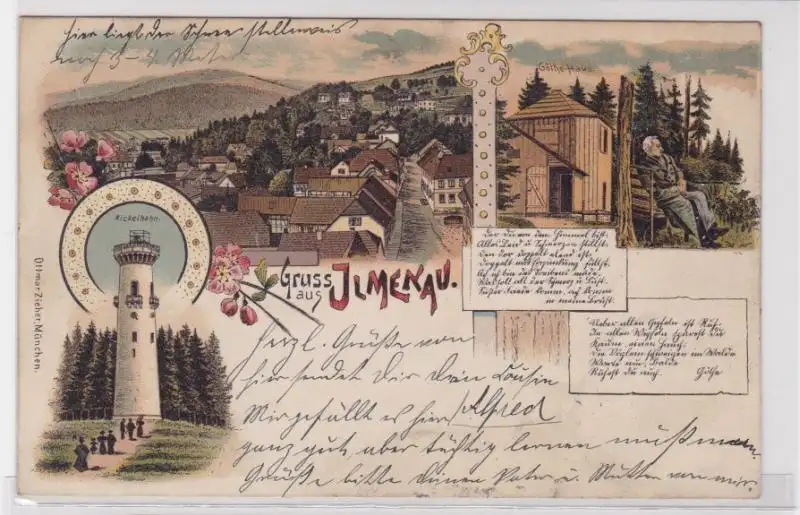 Hier liegt der Schnee stellenweis
noch 3-4 Meter
Göthe-Haus.
Kickelhahn.
Der du von dem Himmel bist,
Alles Leid u Schmerzen stillst,
Den der doppelt elend ist,
Doppelt mit Erquickung füllst,
Ach ich bin des Treibens müde,
Was soll all der Schmerz u Lust,
Süßer Friede komm, ach komm
in meine Brust.
Gruss
aus
JLMENAU.
Ueber allen Gipfeln ist Ruh,
In allen Wipfeln spürest du
Kaum einen Hauch;
Die Vöglein schweigen im Walde
Warte nur, balde
Ruhest du auch. Göthe
Ottmar Zieher, München.
Herzl. Grüße von
hier sendet Dir Dein Cousin
Alfred
Mir gefällt es hier
ganz gut, aber tüchtig lernen muß man.
Grüße bitte deinen Vater u. Mutter von mir.